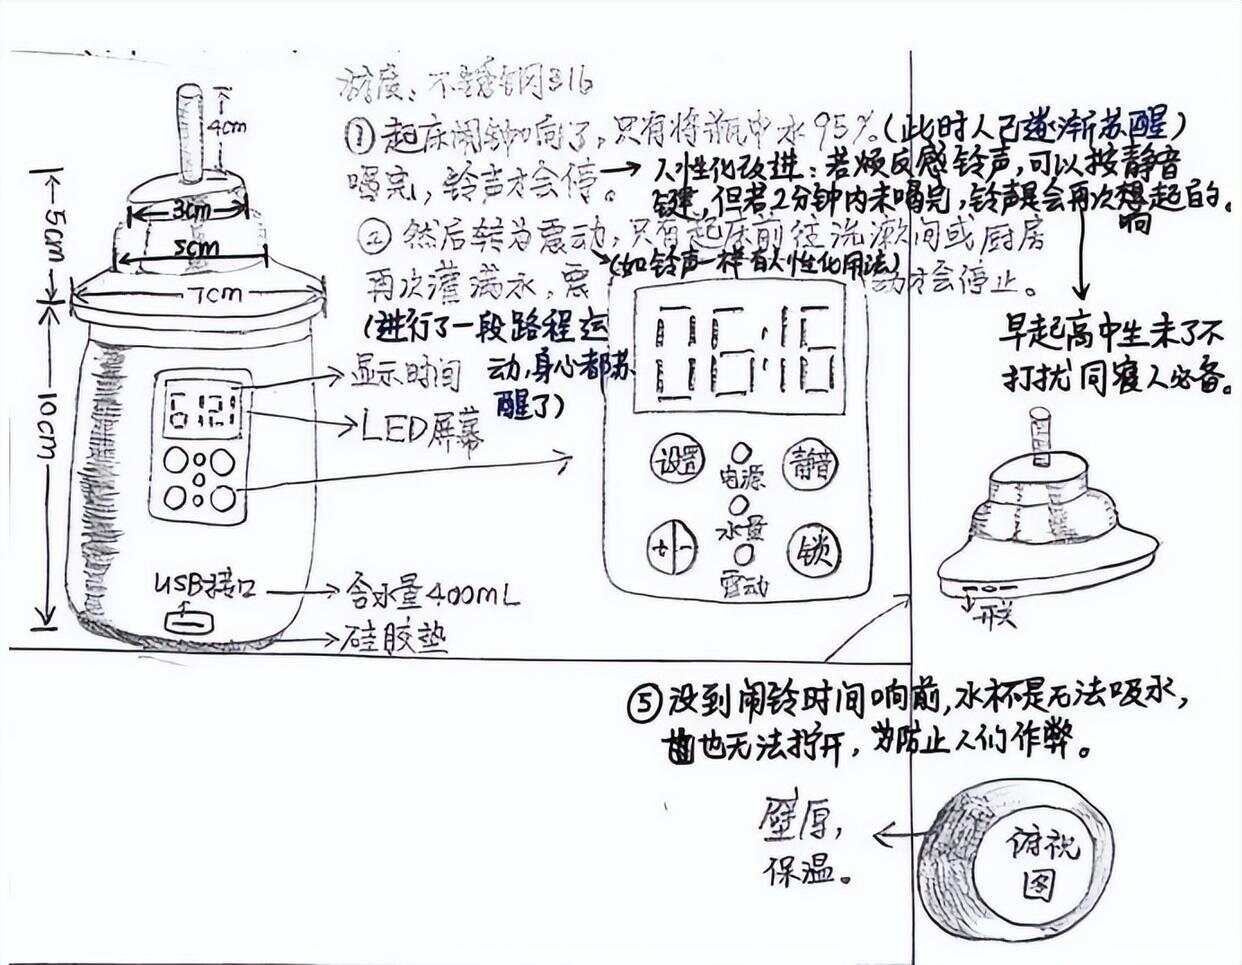 材质:不锈钢316
①起床闹钟响了,只有将瓶中水95%(此时人已逐渐苏醒)
喝完,铃声才会停。
人性化改进:若烦反感铃声,可以按静音
键,但若2分钟内未喝完,铃声是会再次想起的。
响
②然后转为震动,只有起床前往洗漱间或厨房
(如铃声一样有人性化用法)
再次灌满水,震动才会停止。
(进行了一段路程运
动,身心都苏
醒了)
早起高中生未了不
打扰同寝人必备。
4cm
3cm
5cm
5cm
7cm
10cm
显示时间
LED屏幕
06:16
设置
电源
静音
水量
+
-
锁
震动
USB接口
含水量400mL
硅胶垫
开关
⑤没到闹铃时间响前,水杯是无法吸水,
也无法拧开,为防止人们作弊。
壁厚,
保温。
俯视
图